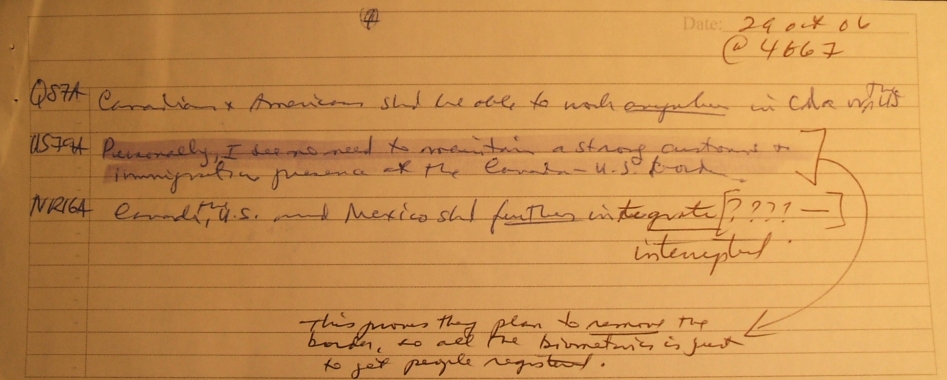 ④
Date: 29 oct 06
@ 4667
QS7A Canadians & Americans shd be able to work anywhere in Cda or the US
US79A Personally, I see no need to maintain a strong customs &
immigration presence at the Canada-U.S. border.
NR16A Canada, the U.S. and Mexico shd further integrate [???? —]
interrupted.
This proves they plan to remove the
border, so all the biometrics is just
to get people registered.